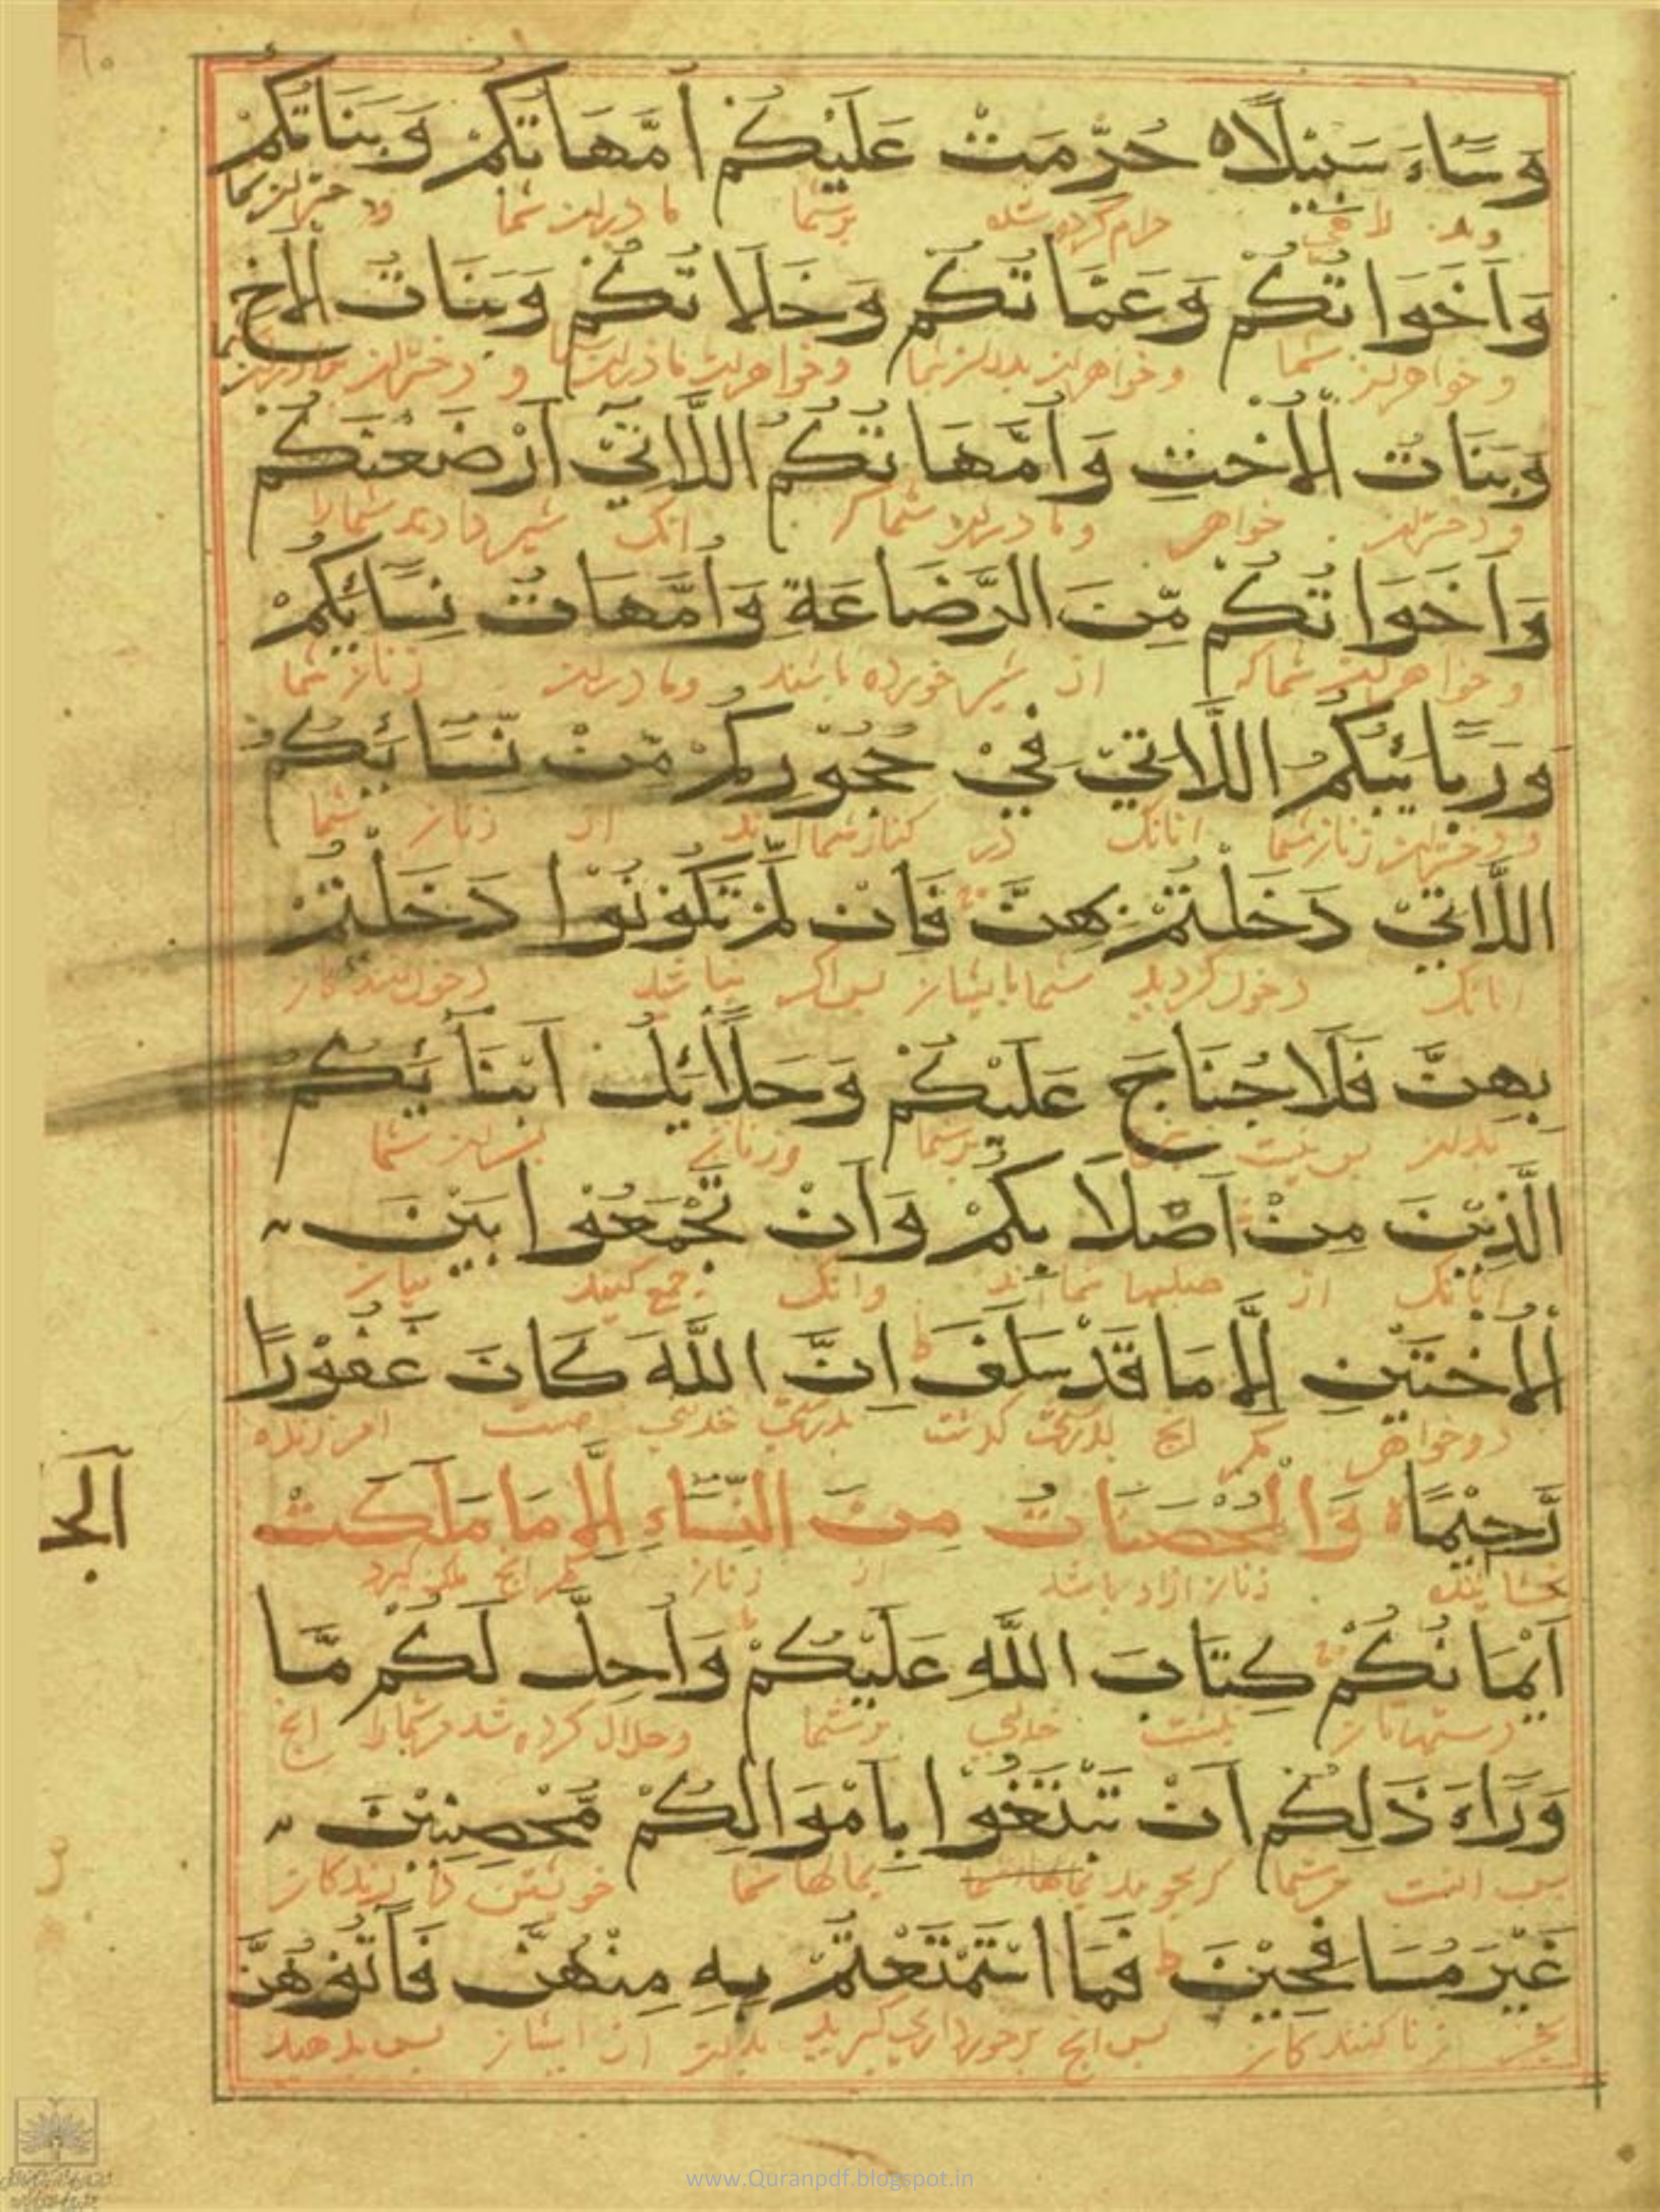 وَسَّاءَ سَبِيْلًا ه حُرِّمَتْ عَلَيْكُمْ اُمَّهَاتُكُمْ وَبَنَاتُكُمْ
حرام کرده شده برشما مادران شما
وَاَخَوَاتُكُمْ وَعَمَّاتُكُمْ وَخَلَاتُكُمْ وَبَنَاتُ الْاَخِ
و خواهران شما
وَبَنَاتُ الْاُخْتِ وَاُمَّهَاتُكُمُ اللَّاتِيْ اَرْضَعْنَكُمْ
و دختران خواهر و مادران شما که انک شیر دادند شمارا
وَاَخَوَاتُكُمْ مِّنَ الرَّضَاعَةِ وَاُمَّهَاتُ نِسَائِكُمْ
و خواهران شما که از شیر خورده باشند و مادران زنان شما
وَرَبَائِبُكُمُ اللَّاتِيْ فِيْ حُجُوْرِكُمْ مِّنْ نِّسَائِكُمُ
و دختران زنان شما انانک در کنار شما اند از زنان شما
اللَّاتِيْ دَخَلْتُمْ بِهِنَّ فَاِنْ لَّمْ تَكُوْنُوْا دَخَلْتُمْ
انانک دخول کردید شما بایشان پس اگر نباشد
بِهِنَّ فَلَا جُنَاحَ عَلَيْكُمْ وَحَلَائِلُ اَبْنَائِكُمُ
بدان پس نیست برشما وزنان پسران شما
الَّذِيْنَ مِنْ اَصْلَابِكُمْ وَاَنْ تَجْمَعُوْا بَيْنَ
انانک از صلبها شما اند وانک جمع کنید میان
الْاُخْتَيْنِ اِلَّا مَا قَدْ سَلَفَ ط اِنَّ اللَّهَ كَانَ غَفُوْرًا
دو خواهر مگر انچ بدرستی گذشت بدرستی خدای هست امرزنده
رَّحِيْمًا ه وَالْمُحْصَنَاتُ مِنَ النِّسَاءِ اِلَّا مَا مَلَكَتْ
بخشاینده زنان ازاد باشد از زنان مگر انچ ملک کرد
الجز
اَيْمَانُكُمْ كِتَابَ اللَّهِ عَلَيْكُمْ وَاُحِلَّ لَكُمْ مَّا
خدای برشما وحلال کرده شد مرشمارا انچ
وَرَاءَ ذَلِكُمْ اَنْ تَبْتَغُوْا بِاَمْوَالِكُمْ مُّحْصِنِيْنَ
پس انست مرشما بمالها شما خویشتن
غَيْرَ مُسَافِحِيْنَ ط فَمَا اسْتَمْتَعْتُمْ بِهِ مِنْهُنَّ فَاٰتُوْهُنَّ
بجز زنا کنندکان پس انچ برخورداری گیرید بدان از ایشان پس بدهید
www.Quranpdf.blogspot.in